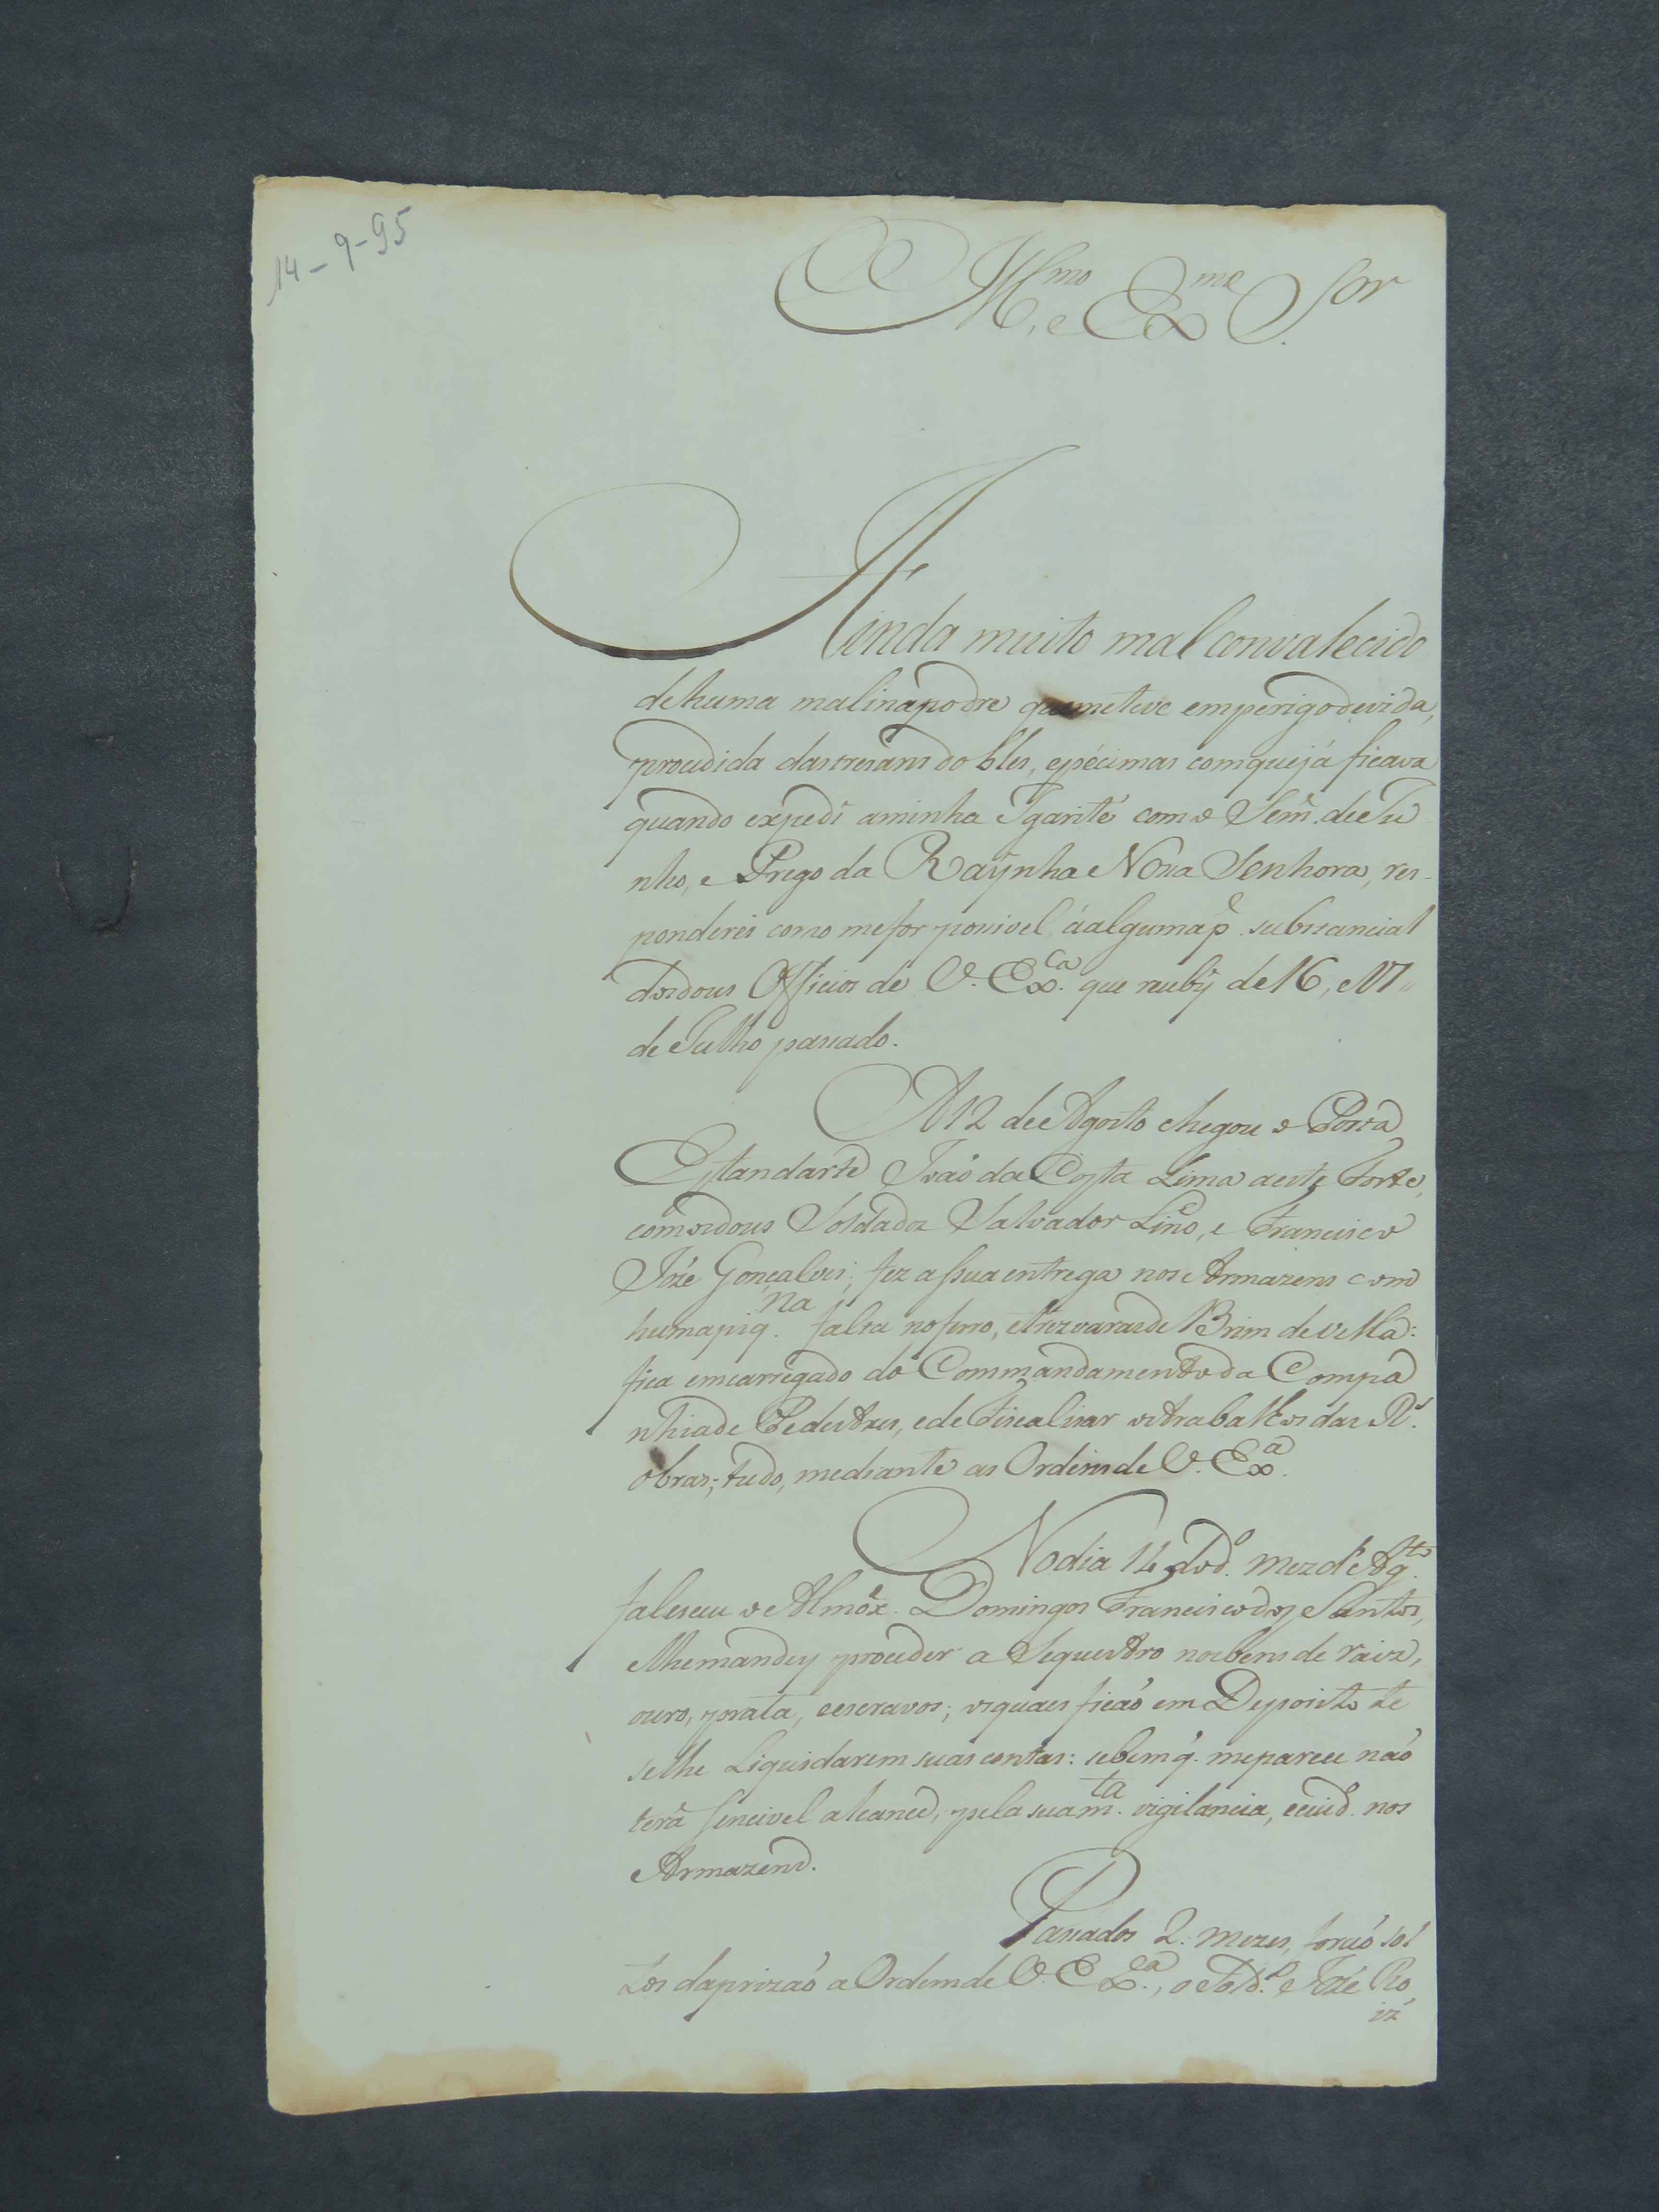 14-9-95
Ill.mo, e Ex.me Sor
Ainda muito mal convalecido
de huma malina podre que me teve em perigo de vida,
procedida das tresans dobles, e pécimas com que já ficava
quando expedi a minha Igarité com o Sem. de Ju
nho, e Prego da Raÿnha Nossa Senhora, res-
ponderei como me for possivel á alguma p.e substancial
dos dous Officios de V. Ex.ca que recebÿ de 16, e 17
de Julho passado.
A 12 de Agosto chegou o Porta
Estandarte Joaõ da Costa Lima a este Forte,
com os dous Soldados Salvador Lino, e Francisco
Joze Gonçalves; fez a sua entrega nos Armazens com
huma piq.na falta no ferro, e trez varas de Brim de vella:
fica emcarregado do Commandamento da Compa
nhia de Pedestres, e de Fiscalisar os trabalhos das R.s
obras; tudo, mediante as Ordens de V. Ex.a
No dia 14 do d.o mez de Ag.to
faleceu o Almox.e Domingos Francisco dos Santos,
e lhe mandey proceder a Sequestro nos bens de raiz,
ouro, prata, e escravos; os quaes ficaõ em Deposito té
se lhe Liquidarem suas contas: se bem q. me parece naõ
terá sencivel alcance, pela sua m.ta vigilancia, e cuid.o nos
Armazens.
Passados 2. mezes, foraõ sol
tos da prizaõ a Ordem de V. Ex.a, o Sold.o Joze Ro
iz